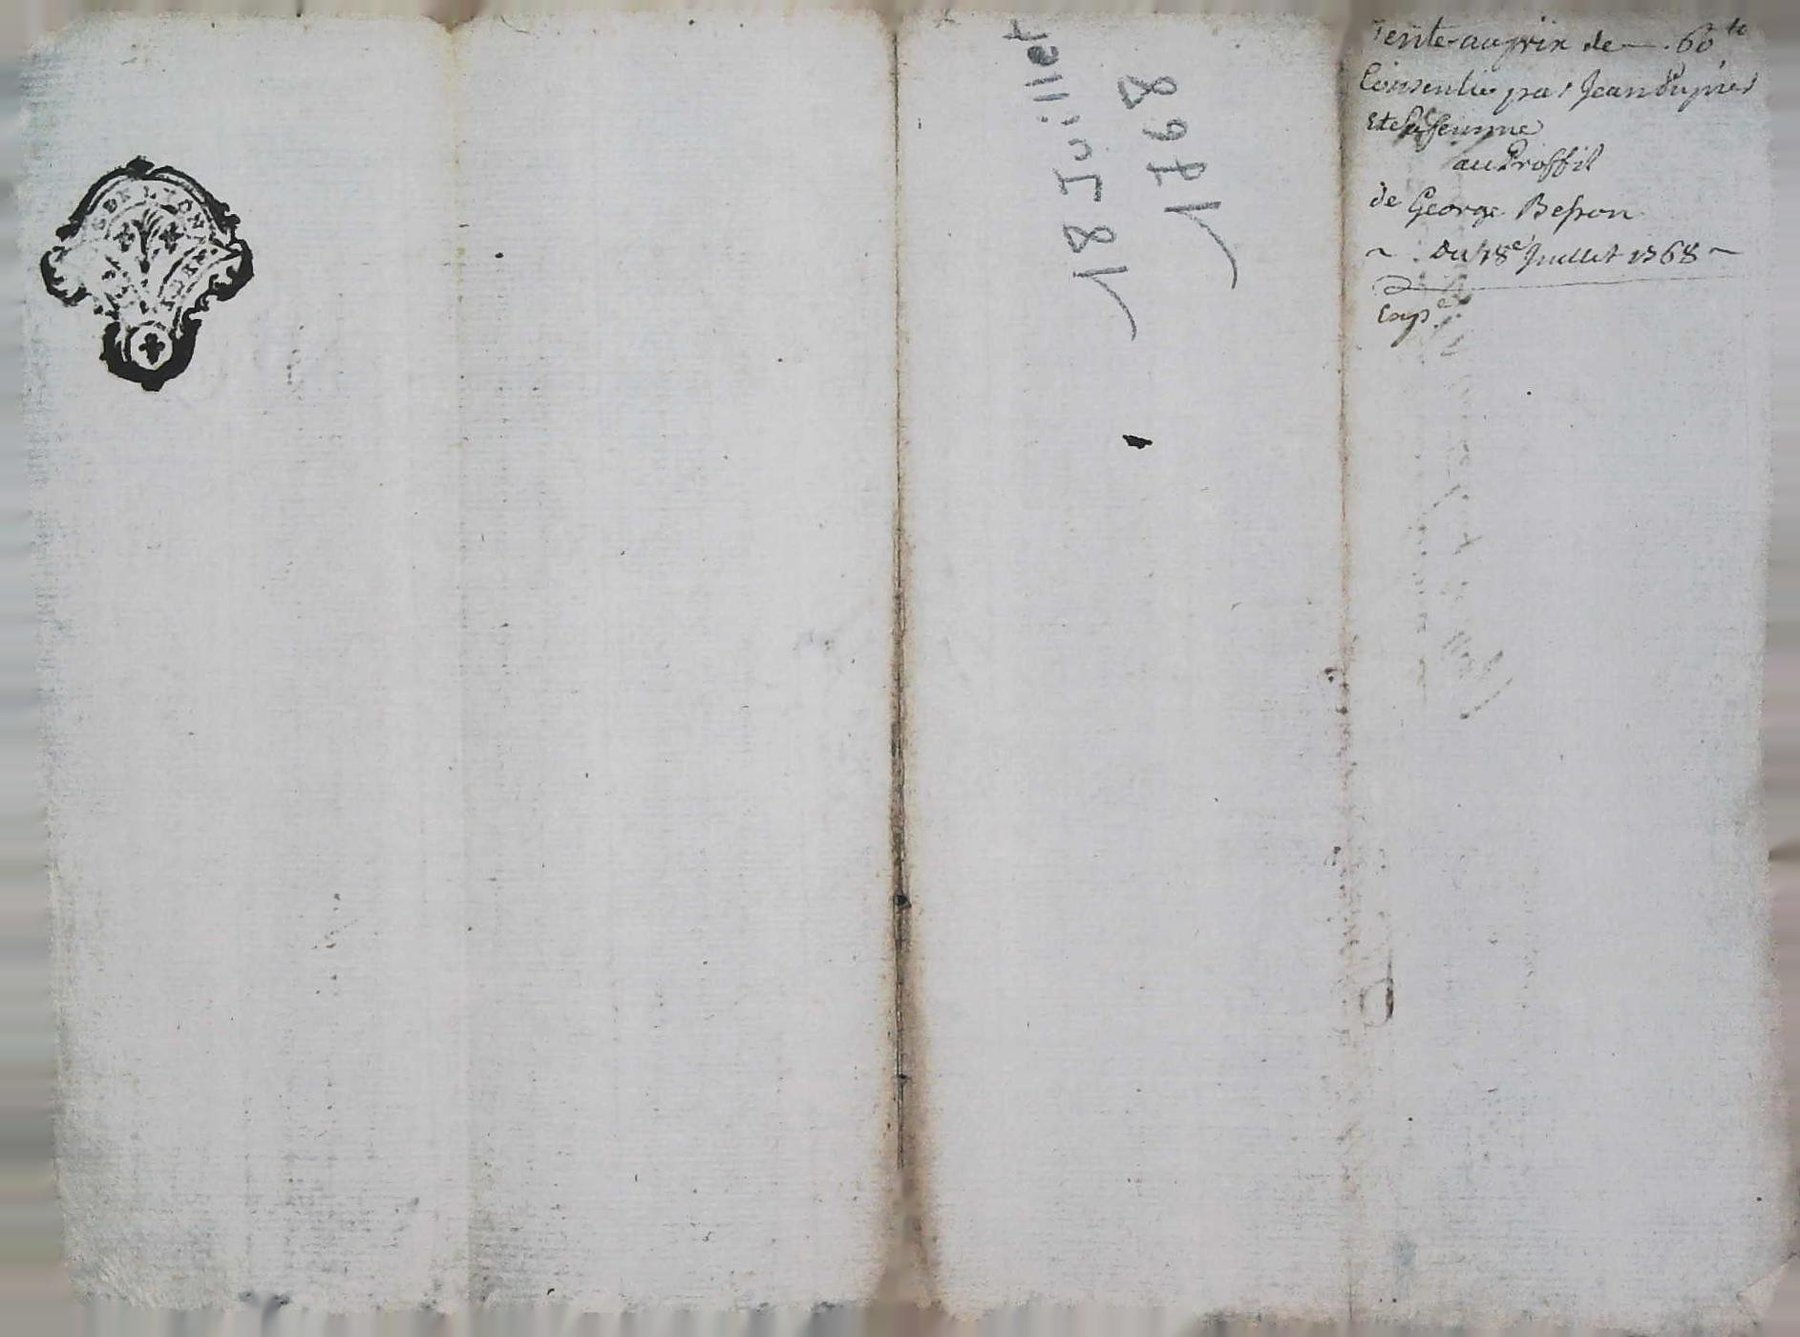 GEN. DE LYON
18 Juillet
1768
Vente au prix de — 60 ᵗᵗ
Consentie par Jean Dupuis
Et Sa femme
au Proffit
de George Besson
~ . Du 18e Juillet 1768 ~
Exp.